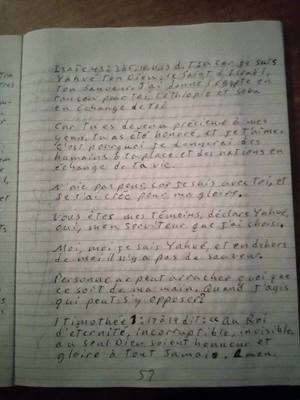 Isaïe 43: dit: car je suis
Yahvé ton Dieu, le Saint d'Israël,
ton Sauveur. J'ai donné l'Egypte en
rançon pour toi, l'Ethiopie et Seba
en échange de toi
Car tu es devenu précieux à mes
yeux, tu as été honoré, et je t'aime.
c'est pourquoi je donnerai des
humains à ta place et des nations en
échange de ta vie.
N'aie pas peur, car je suis avec toi, et
je t'ai créé pour ma gloire.
Vous êtes mes témoins, déclare Yahvé,
oui, mon serviteur que j'ai choisi.
Moi, moi je suis Yahvé, et en dehors
de moi il n'y a pas de sauveur.
Personne ne peut arracher quoi que
ce soit de ma main. Quand j'agis
qui peut s'y opposer?
1 Timothée 1: dit: «Au Roi
d'éternité, incorruptible, invisible,
au seul Dieu soient honneur et
gloire à tout jamais. Amen.
57